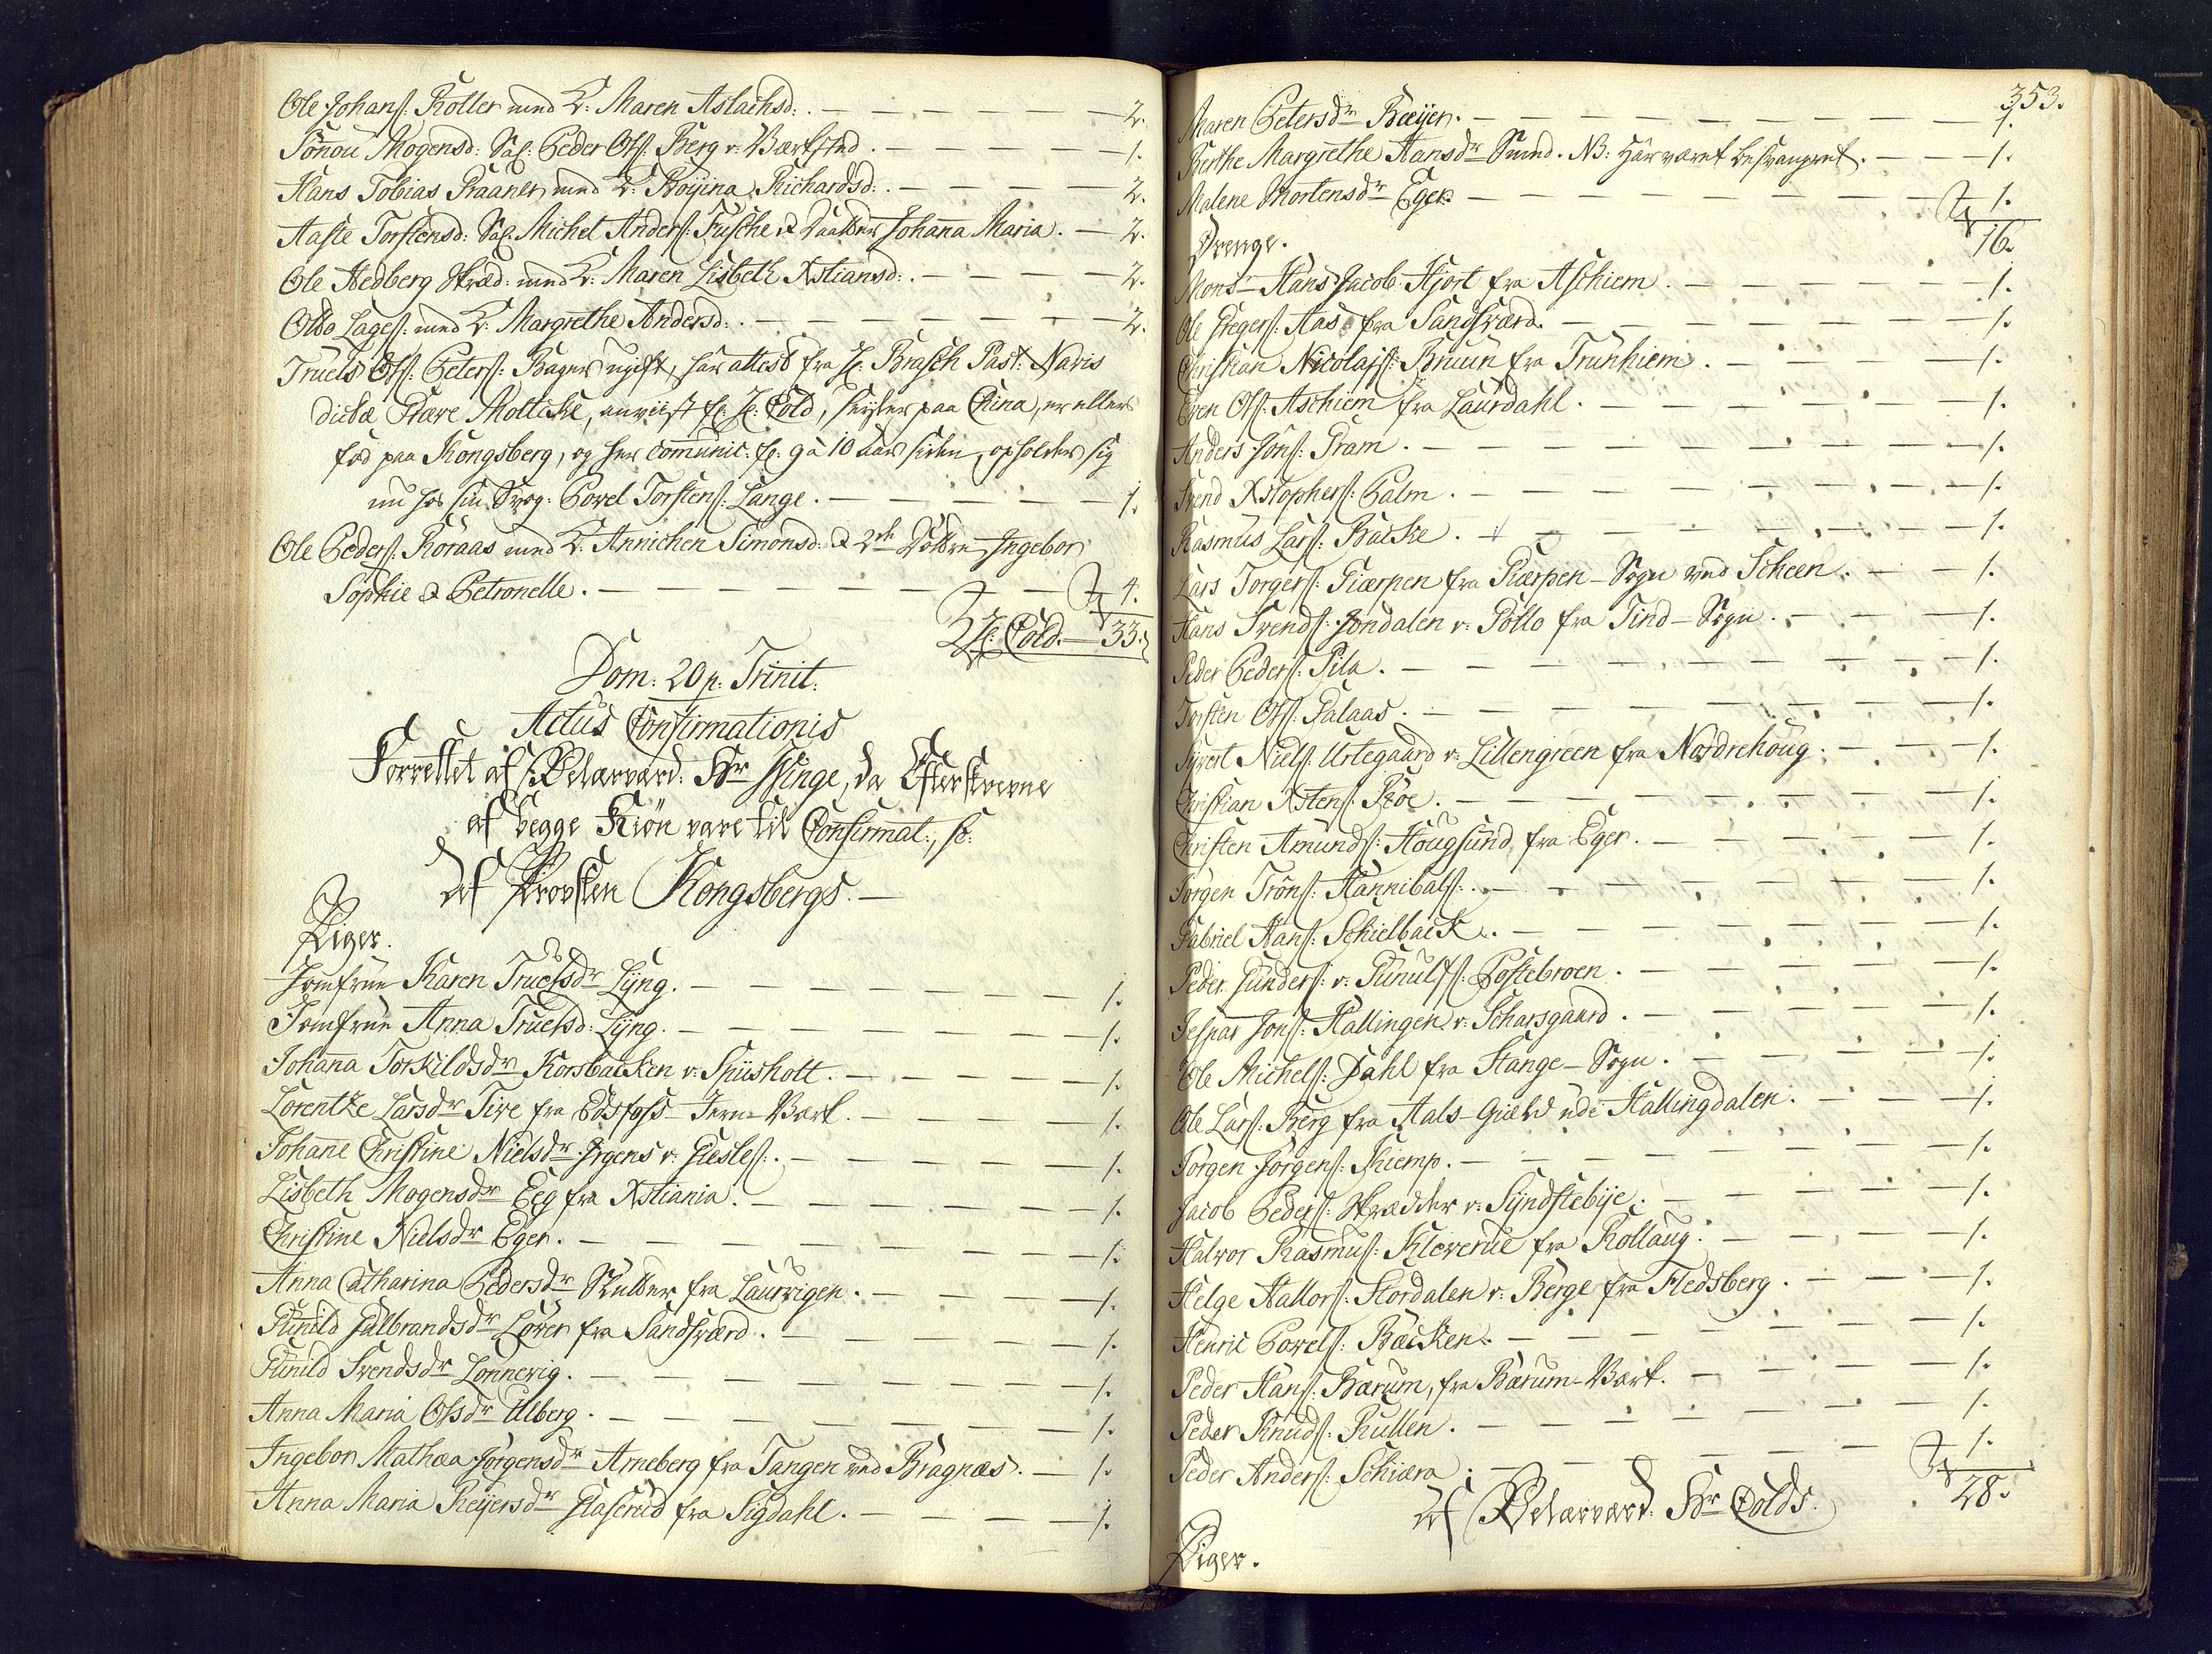 Ole Johans: Roller med K: Maren Aslachsd: . — — — — 2.
Sönou Mogensd: Sal: Peder Ols: Berg v: Værksted . — — — 1.
Hans Tobias Praaner med K: Roijina Richardsd: . — — — 2.
Aaste Torstensd: Sal: Michel Anders: Fusche & Daatter Johanna Maria . — 2.
Ole Hedberg Skræd: med K: Maren Lisbeth Xstiansd: . — — — 2.
Otto Lages: med K: Margrethe Andersd: . — — — 2.
Truels Ols: Peters: Bager ugift, har attest fra H: Brasch Past: Navis
dictæ Græve Moltcke, anviist fr: H: Cold, Seyler paa China, er ellers
fød paa Kongsberg, og her communic: fr: 9 à 10 aar siden, opholder sig
nu hos sin Svog: Povel Torstens: Lange . — — — 1.
Ole Peders: Röraas med K: Annichen Simonsd: & 2de Döttre, Ingebor
Sophie & Petronelle . — — — 4.
H: Cold. — 33.
Dom: 20 p: Trinit:
Actus Confirmationis
Forrettet af Velærværd: Hr Hinge, da Efterskrevne
af begge Kiön vare til Confirmat:, sc:
Af Provsten Kongsbergs. —
Piger.
Jomfrue Karen Truelsdr Lÿng. — — — 1.
Jomfrue Anna Truelsd: Lÿng. — — — 1.
Johanna Torkildsdr Korsbacken v: Spiisholt. — — — 1.
Lorentze Larsdr Tire fra Edsfoss Jern-Værk. — — — 1.
Johanne Christine Nielsdr Jrgens v: Giesles: . — — — 1.
Lisbeth Mogensdr Eeg fra Xstiania. — — — 1.
Christine Nielsdr Eger. — — — 1.
Anna Catharina Pedersdr Skutter fra Laurvigen. — — — 1.
Gunild Gulbrandsdr Lover fra Sandsværd. — — — 1.
Gunild Svendsdr Lonnevig. — — — 1.
Anna Maria Olsdr Ulberg. — — — 1.
Ingebor Mathæa Jörgensdr Arneberg fra Tangen ved Bragnæs. — 1.
Anna Maria Reijersdr Glaserud fra Sigdahl. — — — 1.
353.
Maren Petersdr Bæijer. — — — 1.
Berthe Margrethe Hansdr Smed. NB: Har været besvangret. — — 1.
Malene Mortensdr Eger. — — — 1.
16.
Drenge.
Monsr Hans Jacob Hjort fra Aschiem. — — — 1.
Ole Gregers: Aas fra Sandsværd. — — — 1.
Christian Nicolajs: Bruun fra Trunhiem. — — — 1.
Even Ols: Aschiem fra Laurdahl. — — — 1.
Anders Jons: Gram. — — — 1.
Svend Xstophers: Palm. — — — 1.
Rasmus Lars: Backe. — — — 1.
Lars Torgers: Giærpen fra Giærpen-Sogn ved Scheen. — — 1.
Hans Svends: Jondalen v: Gollo fra Tind-Sogn. — — — 1.
Peder Peders: Pila. — — — 1.
Torsten Ols: Galaas. — — — 1.
Syvert Niels: Urtegaard v: Lillengreen fra Nordrehoug. — — 1.
Christian Xstens: Röe. — — — 1.
Christen Amunds: Hougsund fra Eger. — — — 1.
Jörgen Tröns: Hannibals: . — — — 1.
Gabriel Hans: Schielbæck. — — — 1.
Peder Gunders: v: Gunulfs: Postebroen. — — — 1.
Jespar Jons: Hallingen v: Scharsgaard. — — — 1.
Ole Michels: Dahl fra Stange-Sogn. — — — 1.
Ole Lars: Berg fra Aals-Gield udi Hallingdalen. — — 1.
Jörgen Jörgens: Skiemp. — — — 1.
Jacob Peders: Skrædder v: Sÿndstebije. — — — 1.
Halvor Rasmus: Kleverue fra Rollaug. — — — 1.
Helge Hallors: Stordalen v: Berge fra Fledsberg. — — 1.
Henric Povels: Bæcken. — — — 1.
Peder Hans: Bærum, fra Bærum-Værk. — — — 1.
Peder Knuds: Rullen. — — — 1.
Peder Anders: Schiæra. — — — 1.
28.
Af Velærværd: Hr Colds.
Piger.